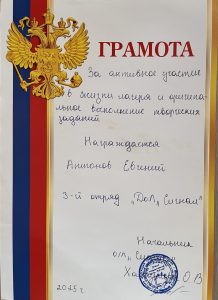 ГРАМОТА
За активное участие
в жизни лагеря и оригиналь-
ное выполнение творческих
заданий
Награждается
Антонов Евгений
3-й отряд "ДОЛ "Сигнал"
Начальник
О.В
2015 г